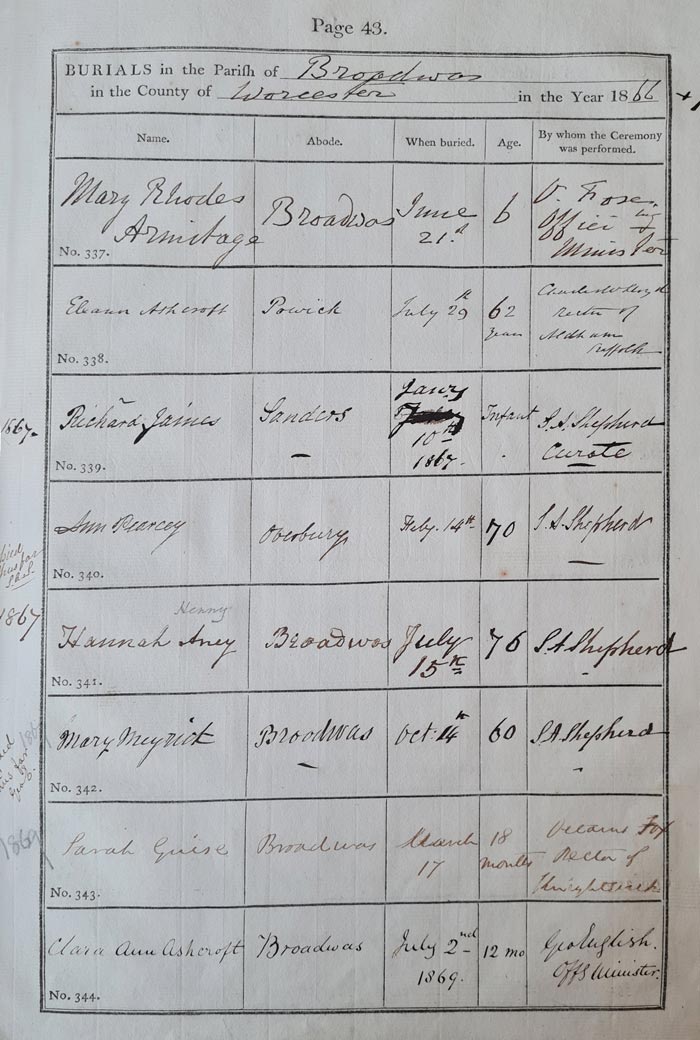 Page 43.
BURIALS in the Parish of Broadwas
in the County of Worcester in the Year 1866
Name. Abode. When buried. Age. By whom the Ceremony was performed.
Mary Rhodes
Armitage
No. 337.
Broadwas
June
21st
6
V. Fox
Offici ing
Minister
Eleanor Ashcroft
No. 338.
Powick
July 29th
62
years
Rector of
Suffolk
1867.
Richard Jaines
No. 339.
Sanders
Jany
10th
1867.
Infant
S. A. Shepherd
Curate
Ann Pearcey
No. 340.
Overbury
Feby. 14th
70
S. A. Shepherd
1867
Henny
Hannah Aney
No. 341.
Broadwas
July
15th
76
S A Shepherd
Mary Meyrick
No. 342.
Broadwas
Oct. 14th
60
S A Shepherd
1869
Sarah Guise
No. 343.
Broadwas
March
17
18
months
Octavius Fox
Rector of
Knightwick
Clara Ann Ashcroft
No. 344.
Broadwas
July 2nd
1869.
12 mo
Geo English.
Offg Minister.